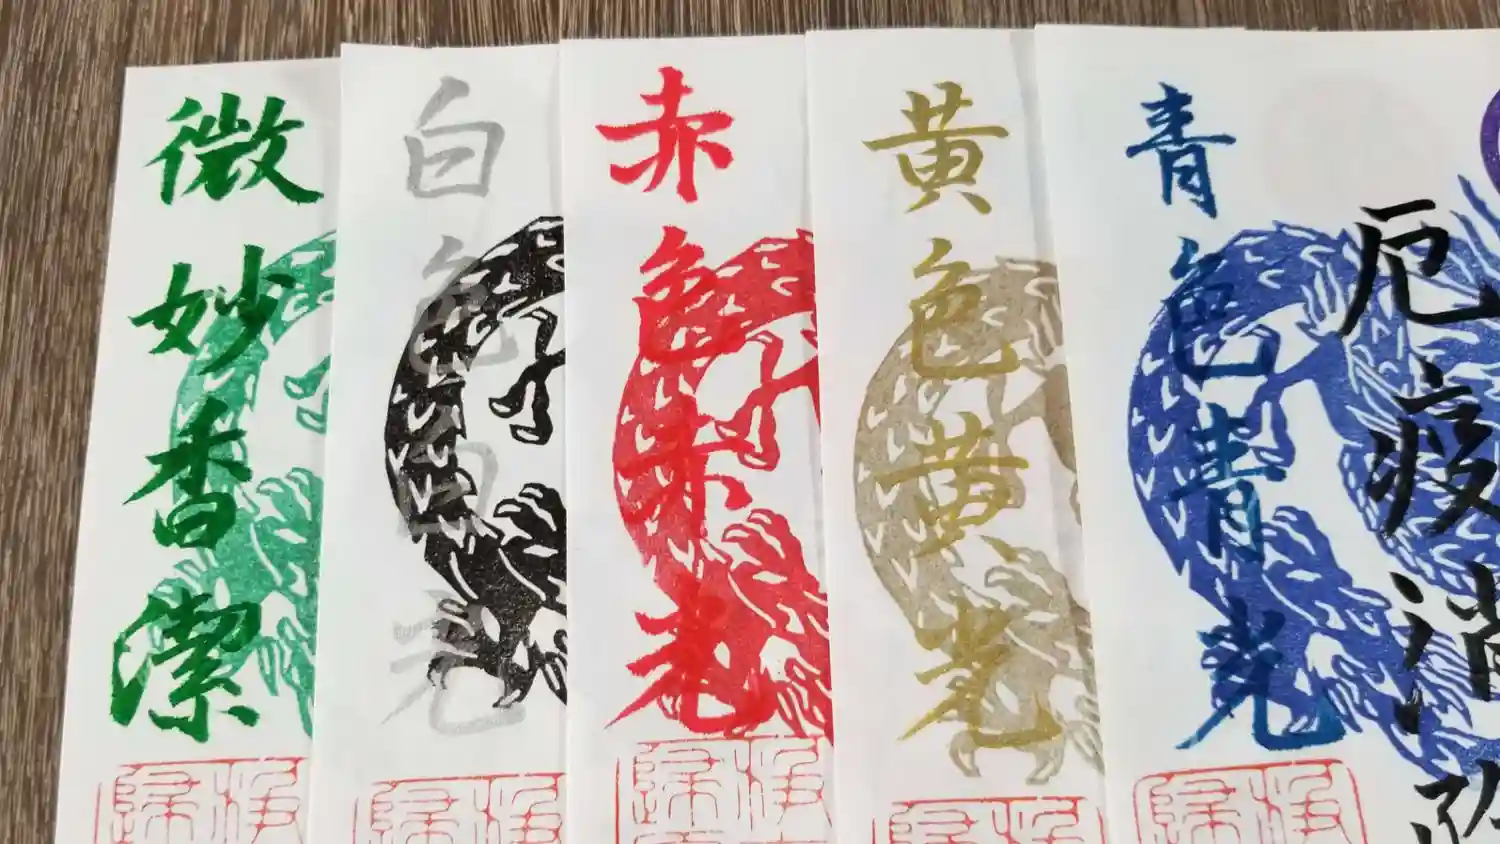 厄疫消除
青色青光
黄色黄光
赤色赤光
白色白光
微妙香潔